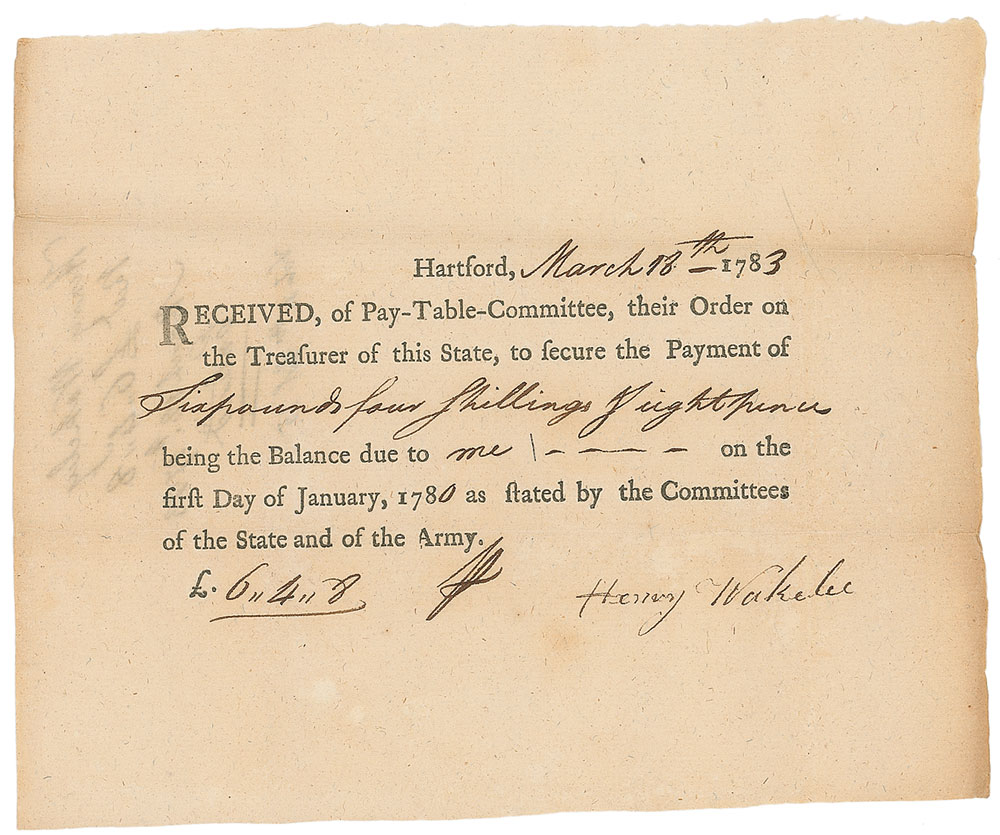 Hartford, March 18th 1783
RECEIVED, of Pay-Table-Committee, their Order on
the Treaſurer of this State, to ſecure the Payment of
Six pounds four Shillings & eight pence
being the Balance due to me \ – — – – on the
firſt Day of January, 1780 as ſtated by the Committees
of the State and of the Army.
£. 6〃4〃8
Henry Wakelee